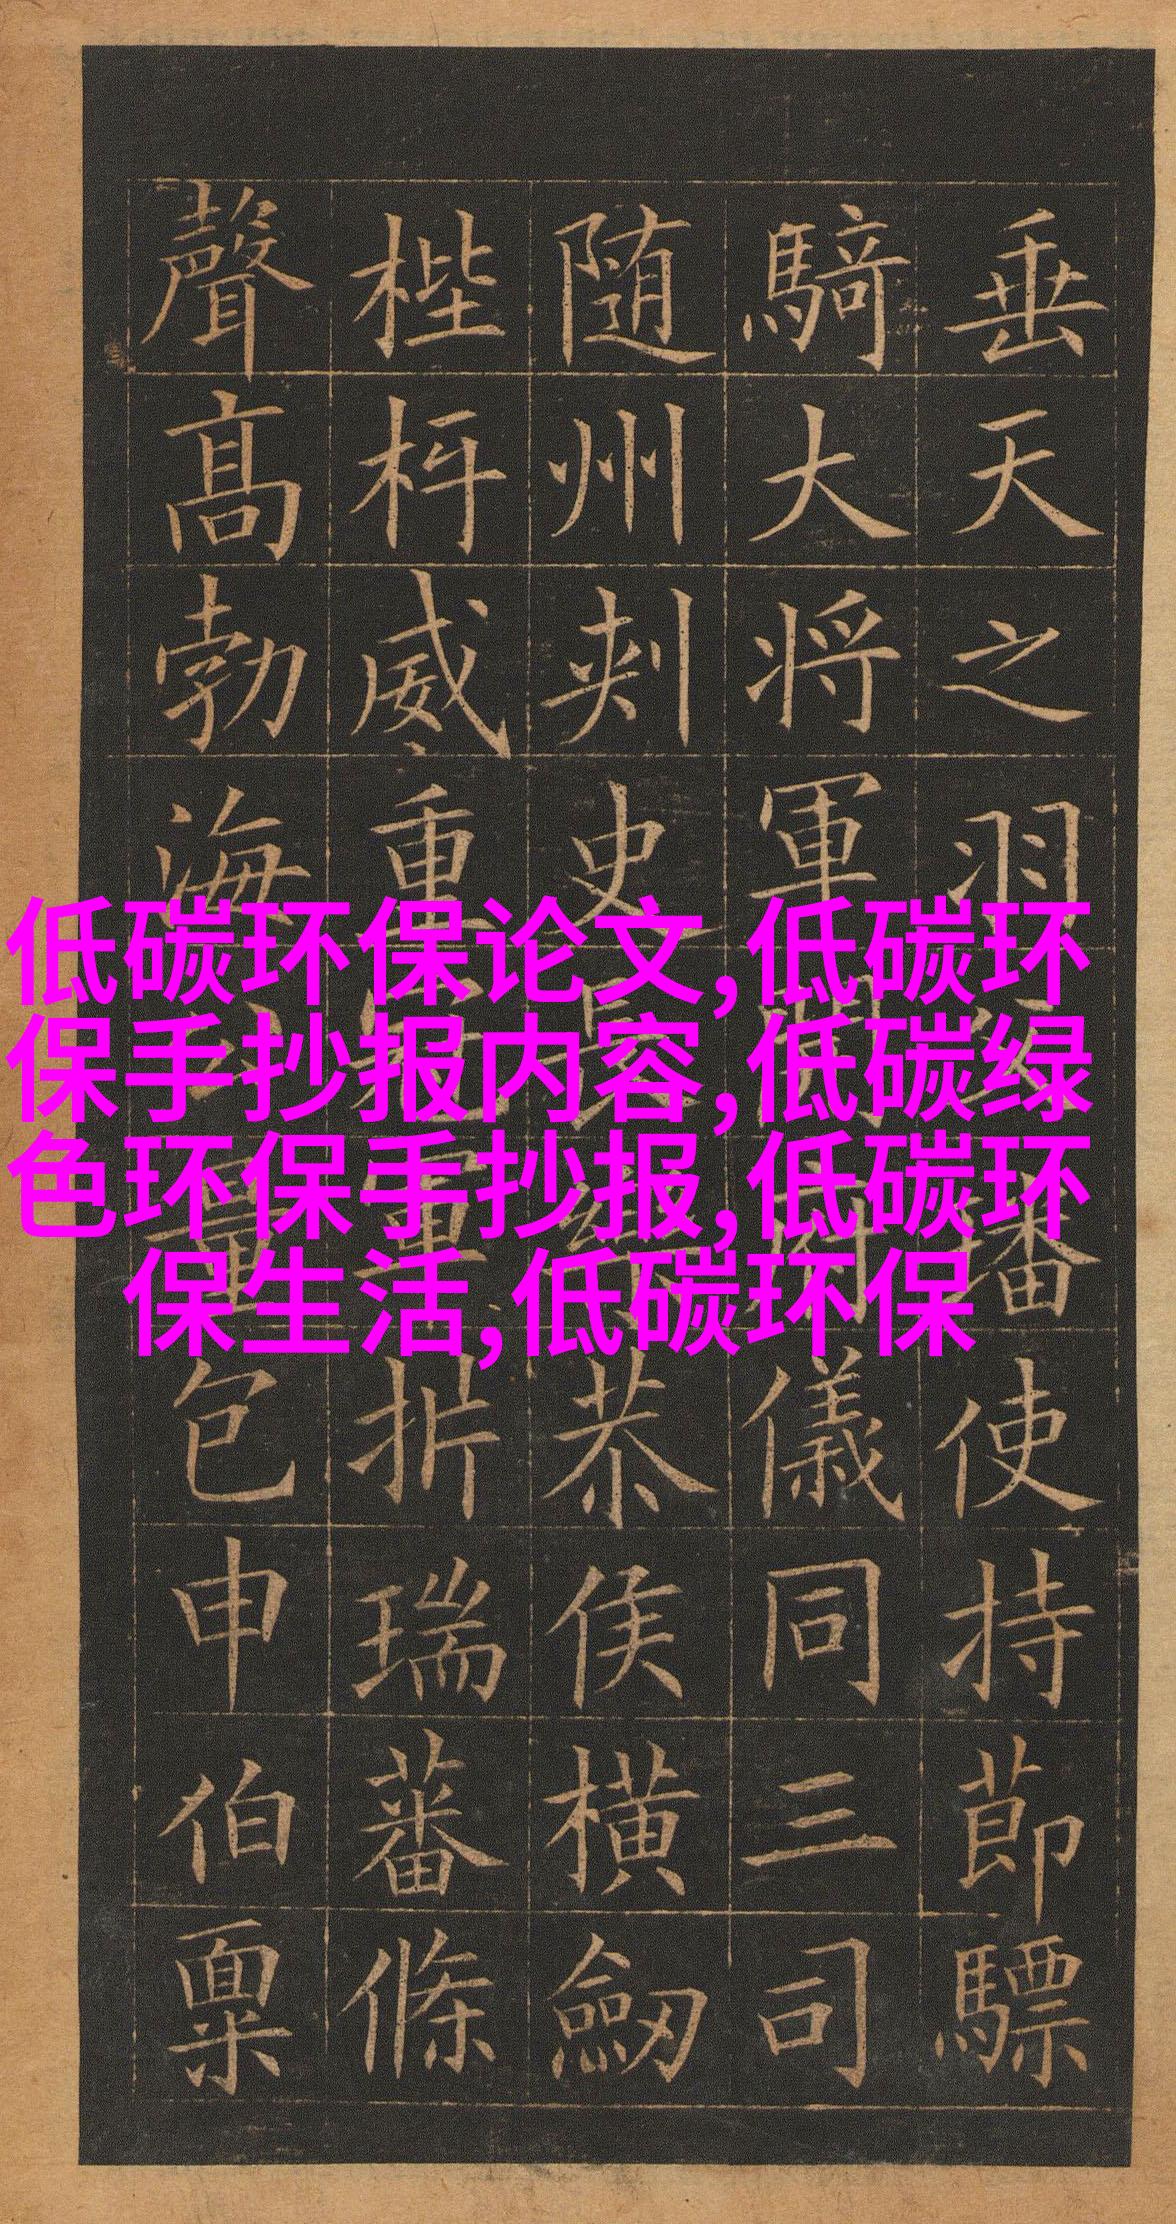 垂天之羽璠使持節驃
騎大将軍開府儀同三司
随州刾史長恭侯橫劒
梐枑威重軍折瑞蕃條
聲髙勃海量包申伯稟
低碳环保论文,低碳环
保手抄报内容,低碳绿
色环保手抄报,低碳环
保生活,低碳环保